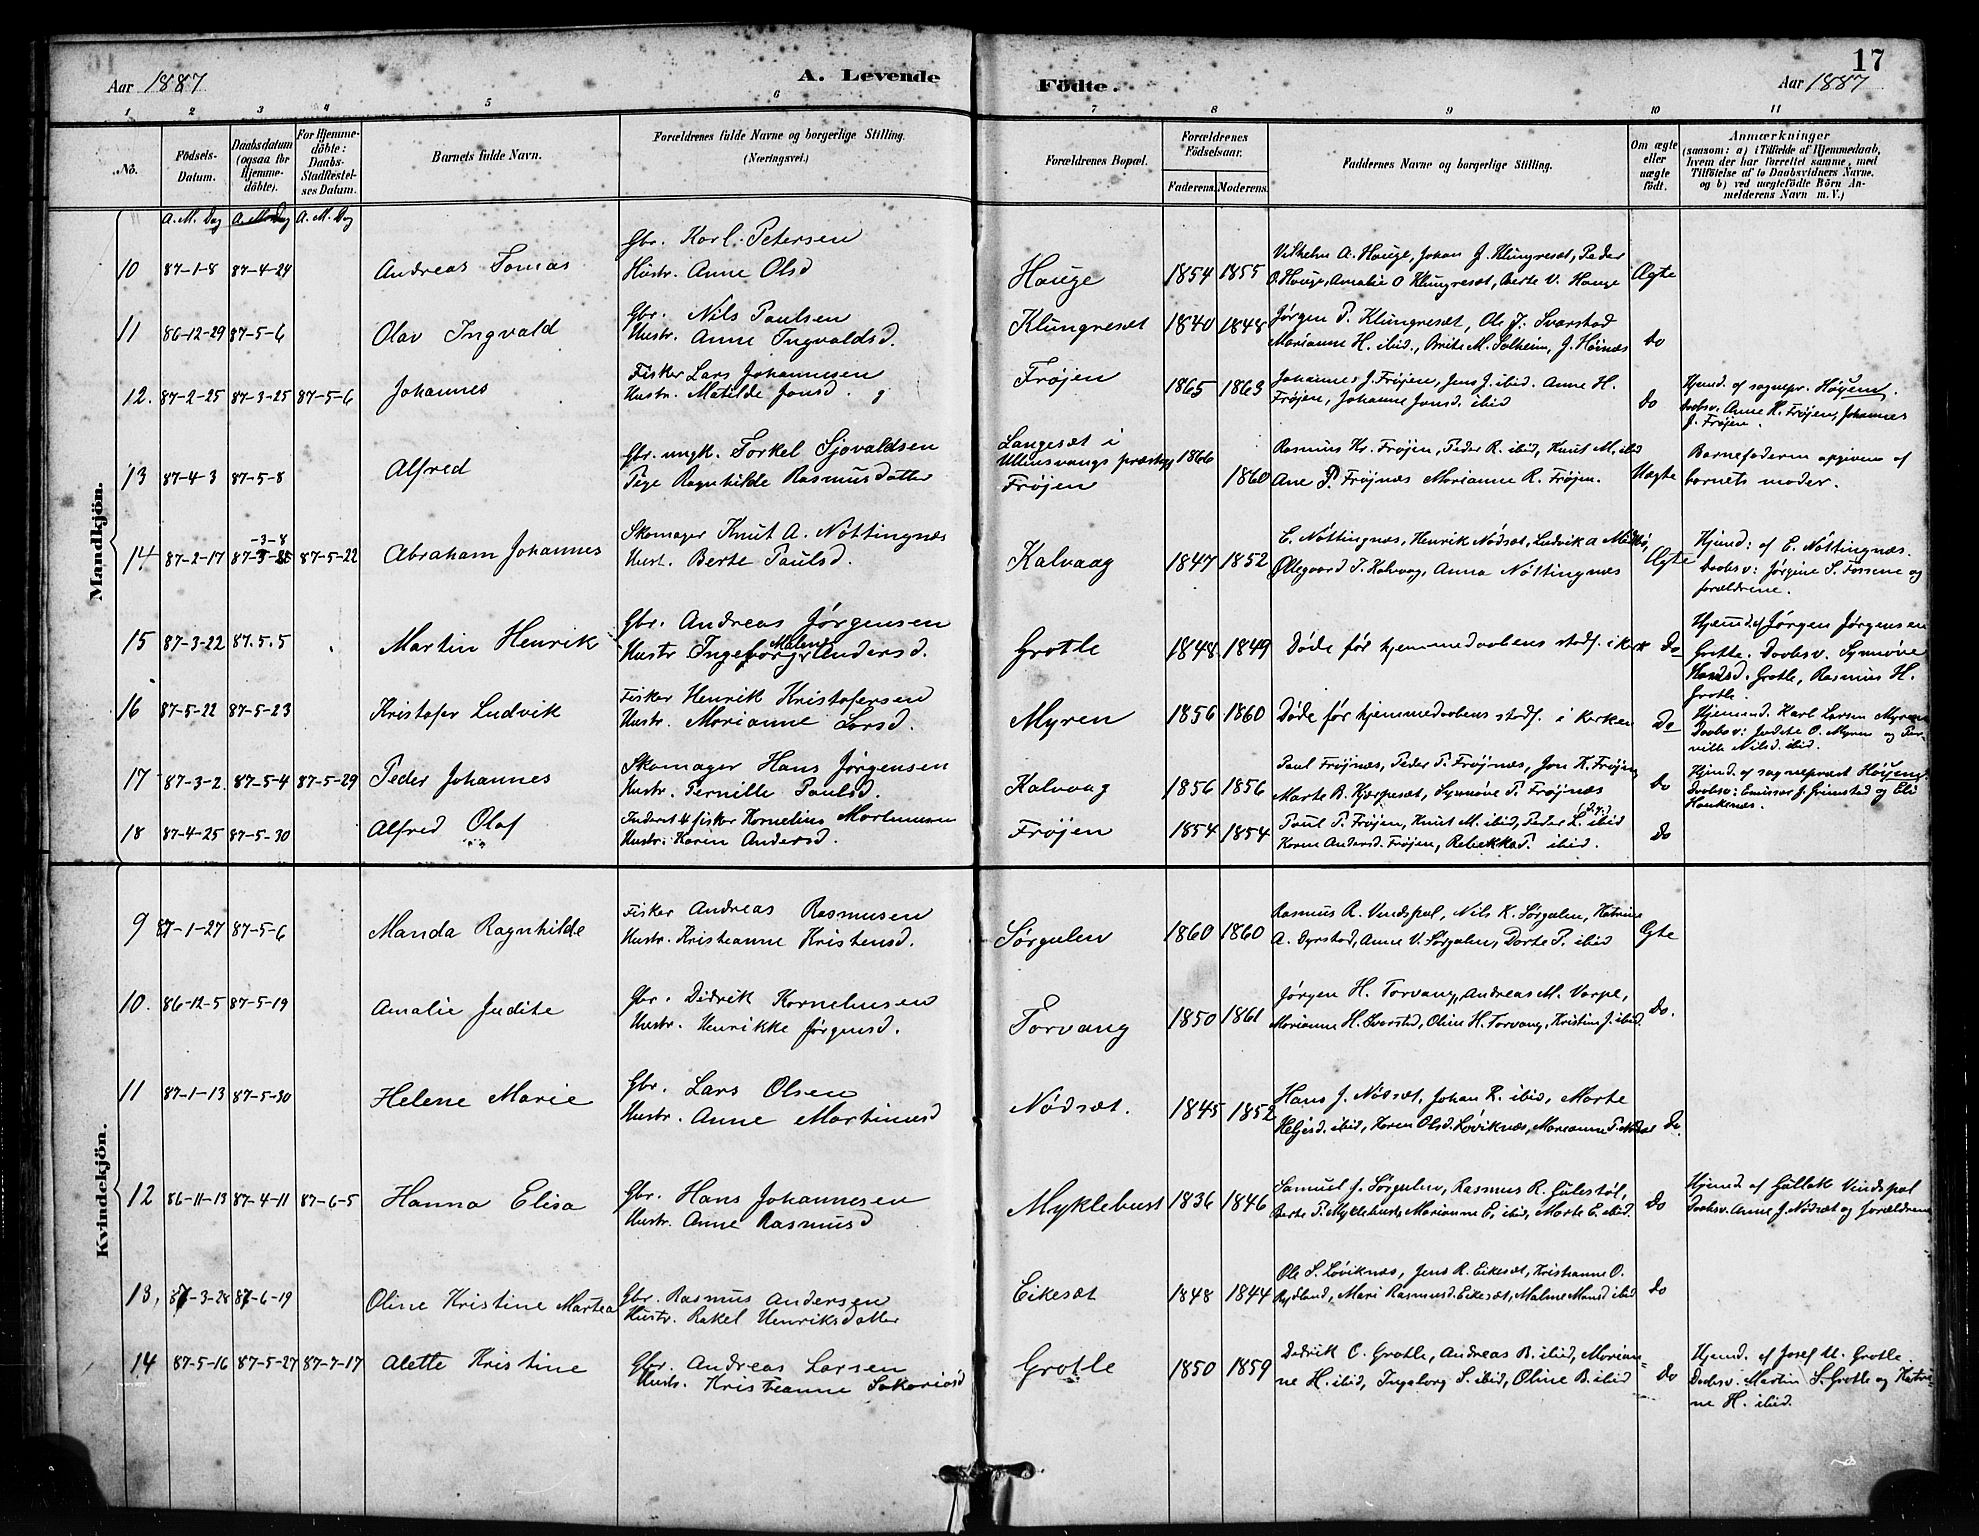 Aar 1887
A. Levende
Födte.
Aar 1887
17
1 2 3 4 5 6 7 8 9 10 11
No.
Födsels-Datum.
Daabsdatum (ogsaa for Hjemme-döbte).
For Hjemme-döbte: Daabs-Stadfæstel-ses Datum.
Barnets fulde Navn.
Forældrenes fulde Navne og borgerlige Stilling. (Næringsvei.)
Forældrenes Bopæl.
Forældrenes Födselsaar.
Faderens. Moderens.
Faddernes Navne og borgerlige Stilling.
Om ægte eller uægte födt.
Anmærkninger
(saasom: a) i Tilfælde af Hjemmedaab,
hvem der har forrettet samme, med
Tilföielse af to Daabsvidners Navne,
og b) ved uægtefödte Börn An-
melderens Navn m. V.)
A. M. Dag A. M. Dag A. M. Dag
Mandkjön.
10 87-1-8 87-4-24 Andreas Tomas
Gbr. Karl Petersen
Hustr. Anne Olsd
Hauge 1854 1855
Vilhelm A. Hauge, Johan J. Klungresæt, Peder
O. Hauge, Amalie O Klungresæt, Berte V. Hauge
Ægte
11 86-12-29 87-5-6 Olav Ingvald
Gbr. Nils Paulsen
Hustr. Anne Ingvaldsd.
Klungresæt 1840 1848
Jørgen P. Klungresæt, Ole J. Svarstad
Marianne H. ibid., Brite M. Solheim, J. Høinæs
do
12. 87-2-25 87-3-25 87-5-6 Johannes
Fisker Lars Johannesen
Hustr. Matilde Jonsd.
Frøjen 1865 1863
Johannes J. Frøjen, Jens J. ibid. Anne H.
Frøjen, Johanne Jonsd. ibid
do
Hjemd. af sognepr. Höyem.
Daabsv. Anne H. Frøjen, Johannes
J. Frøjen.
13 87-4-3 87-5-8 Alfred
Gbr. ungk. Torkel Sjovaldsen
Pige Ragnhilde Rasmusdatter
Langesæt i
Ullensvangs præstegj 1866
Frøjen 1860
Rasmus Kr. Frøjen, Peder R. ibid, Knut M. ibid
Ane P. Frøjnæs Marianne R. Frøjen.
Uægte
Barnefaderen opgiven af
barnets moder.
14 87-2-17 87-3-8 87-5-22 Abraham Johannes
Skomager Knut A. Nöttingnæs
Hust. Berte Paulsd.
Kalvaag 1847 1852
E. Nöttingnæs, Henrik Nødsæt, Ludvik A
Øllegaard T. Kalvaag, Anna Nöttingnæs
Ægte
Hjemd: af E. Nöttingnæs.
Daabsv: Jørgine S. Fossene og
forældrene.
15 87-3-22 87.5.5 Martin Henrik
Gbr. Andreas Jørgensen
Hustr Ingeborg Malene Andersd.
Grotle 1848 1849
Døde før hjemmedaabens stadf. i kirk
Do
Hjemd. af Jørgen Jørgensen
Grotle. Daabsv. Synnøve
Hansd. Grotle, Rasmus H.
Grotle.
16 87-5-22 87-5-23 Kristofer Ludvik
Fisker Henrik Kristofersen
Hustr. Marianne Larsd.
Myren 1856 1860
Døde før hjemmedaabens stadf. i kirken
Do
Hjemmd. Karl Larsen Myren
Daabsv: Judite O. Myren og Per-
nille Nilsd. ibid.
17 87-3-2 87-5-4 87-5-29 Peder Johannes
Skomager Hans Jørgensen
Hustr. Pernille Paulsd.
Kalvaag 1856 1856
Paul Frøjnæs, Peder P. Frøjnæs, Jon K. Frøjen
Marte B. Hjørpesæt, Synnøve P. Frøjnæs
do
Hjemd. af sogneprest Höyem.
Daabsv: Emissær J. Grimstad og Eli
Haukenæs.
18 87-4-25 87-5-30 Alfred Olaf
Inderst & fisker Kornelius Martinusen
Hustr. Karin Andersd.
Frøjen 1854 1854
Paul P. Frøjen, Knut M. ibid, Peder L. ibid
Karen Andersd. Frøjen, Rebekka P. ibid.
do
Kvindekjön.
9 87-1-27 87-5-6 Manda Ragnhilde
Fisker Andreas Rasmusen
Hustr. Kristianne Kristensd.
Sørgulen 1860 1860
Rasmus R. Vindspol, Nils K. Sørgulen, Katrine
A. Dyrstad, Anne V. Sørgulen, Dorte P. ibid
Ægte
10. 86-12-5 87-5-19 Amalie Judite
Gbr. Didrik Kornelusen
Hustr. Henrikke Jørgensd.
Torvang 1850 1861
Jørgen H. Torvang, Andreas M. Varpe,
Marianne H. Sverstad, Oline H. Torvang, Kristine J. ibid.
do.
11 87-1-13 87-5-30 Helene Marie
Gbr. Lars Olsen
Hustr. Anne Martinusd
Nødsæt. 1845 1852
Hans J. Nødsæt, Johan R. ibid, Marte
Heljesd. ibid, Karen Olsd. Løviknæs, Marianne P.
do.
12 86-11-13 87-4-11 87-6-5 Hanna Elisa
Gbr. Hans Johannesen
Hustr. Anne Rasmusd
Myklebust 1836 1846
Samuel J. Sørgulen, Rasmus R. Gulestøl,
Berte P. Myklebust, Marianne E. ibid, Marte E. ibid.
do
Hjemd af Gullak Vindspol
Daabsv. Anne J. Nødsæt og forældrene
13, 87-3-28 87-6-19 Oline Kristine Martea
Gbr. Rasmus Andersen
Hustr. Rakel Henriksdatter
Eikesæt 1848 1844
Ole S. Løviknæs, Jens R. Eikesæt, Kristianne O.
Rydland, Mari Rasmusd. Eikesæt, Malene Monsd ibid
do
14 87-5-16 87-5-27 87-7-17 Alette Kristine
Gbr. Andreas Larsen
Hustr. Kristianne Sakariasd
Grotle 1850 1859
Didrik C. Grotle, Andreas B. ibid, Marian-
ne H. ibid, Ingeborg S. ibid, Oline B. ibid
do
Hjemd. af Josef U. Grotle
Daabsv. Martin S. Grotle og Katri-
ne H. ibid.